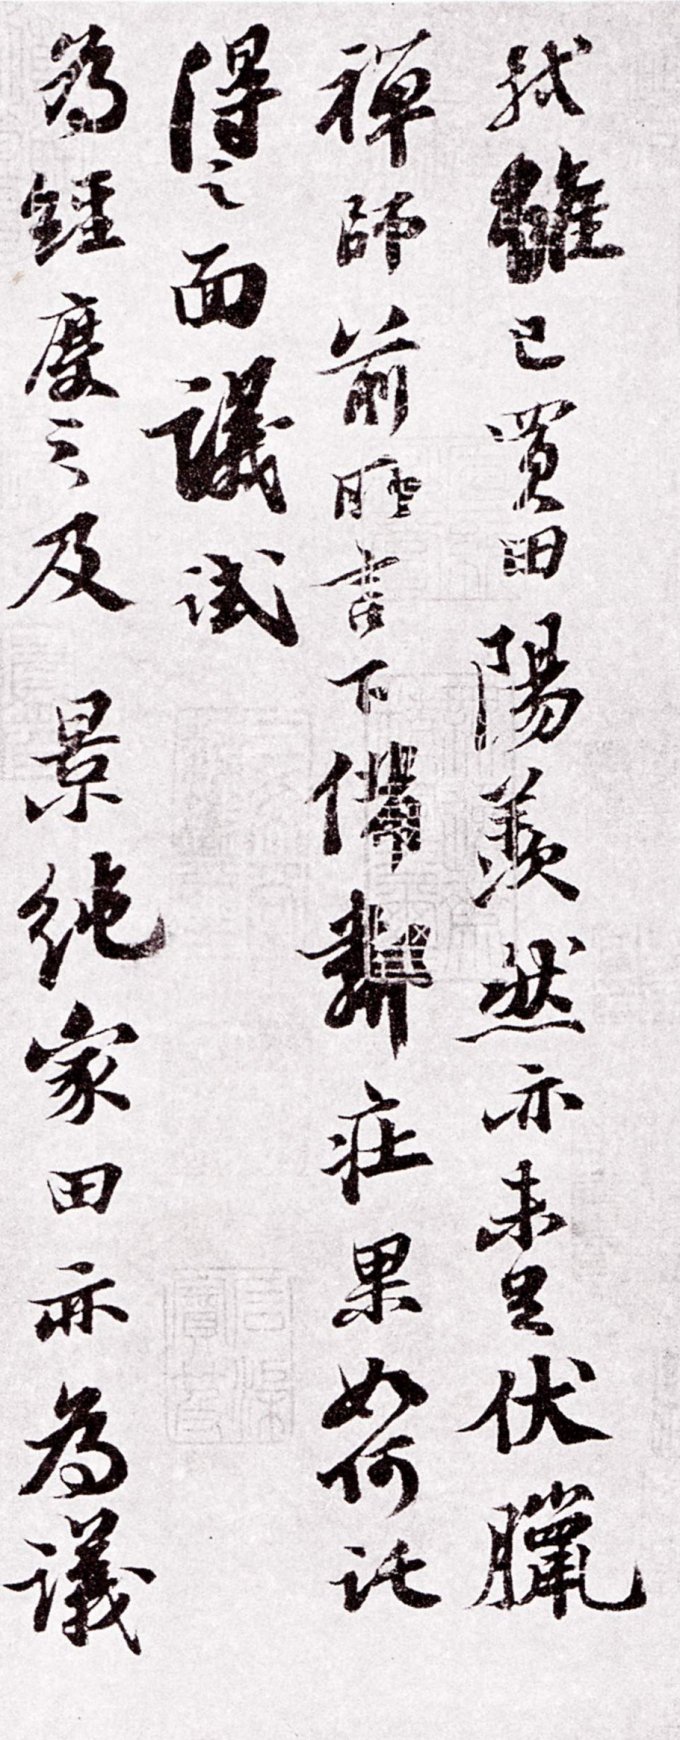 軾雖已買田陽羨然亦未足伏臘
禪師前所言下備鄰庄果如何託
得之面議試
為經度之及 景純家田亦為議